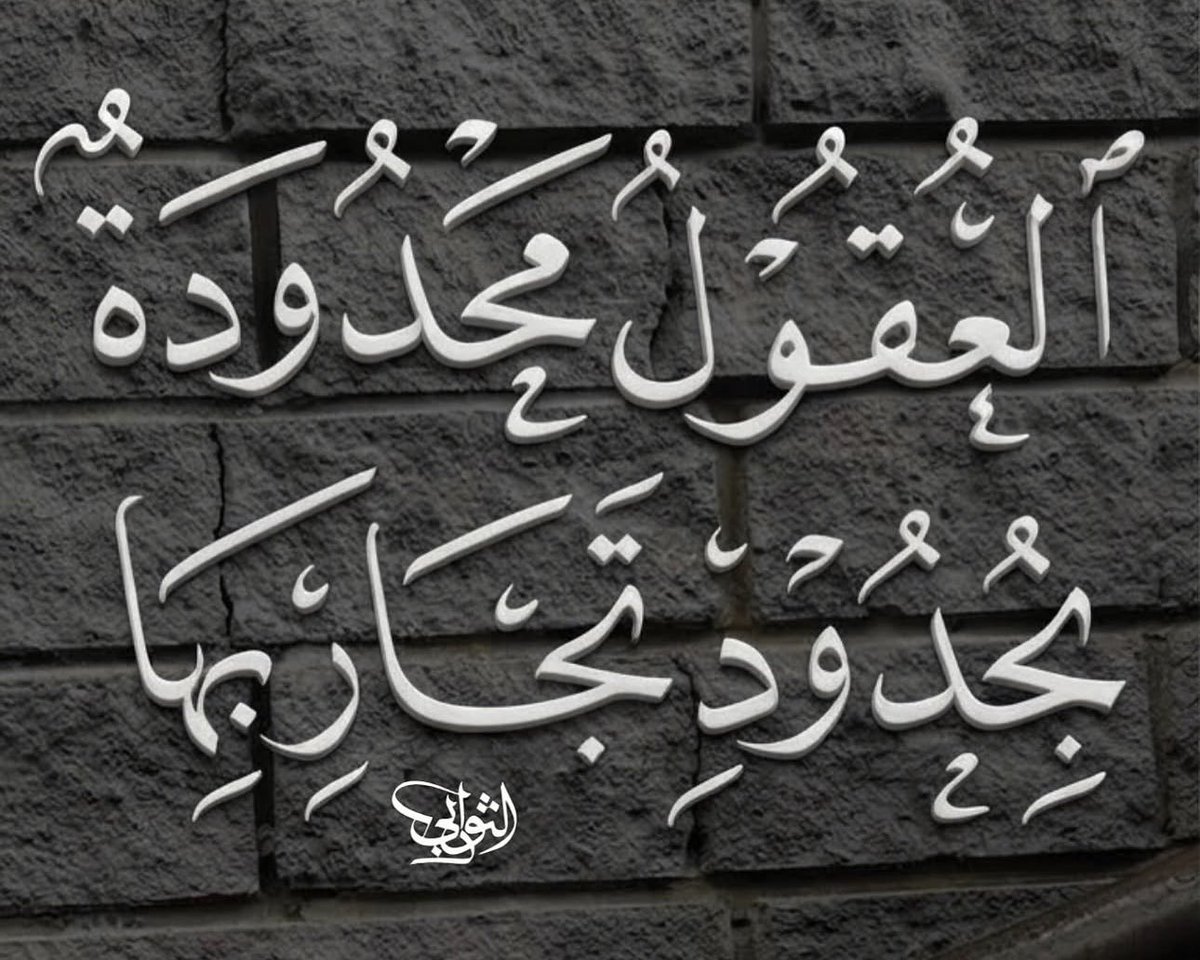 ٱلْعُقُوْلُ مَحْدُوْدَةٌ
بِحُدُوْدِ تَجَارِبِهَا
الثوابي